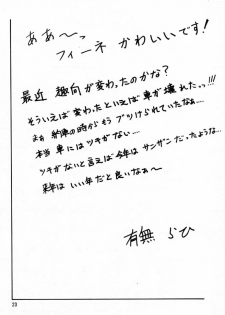 ああ〜っ
フィーネ かわいいです!
最近 趣向が変わったのかな?
そういえば変わったといえば車が壊れたっっ!!!
まぁ 約束の時からもうブツけられていたなぁ…
本当 車にはツキがない…
ツキがないと言えば今年はサンザンだったような…
来年はいい年だと良いなぁ〜
有無 らひ
23